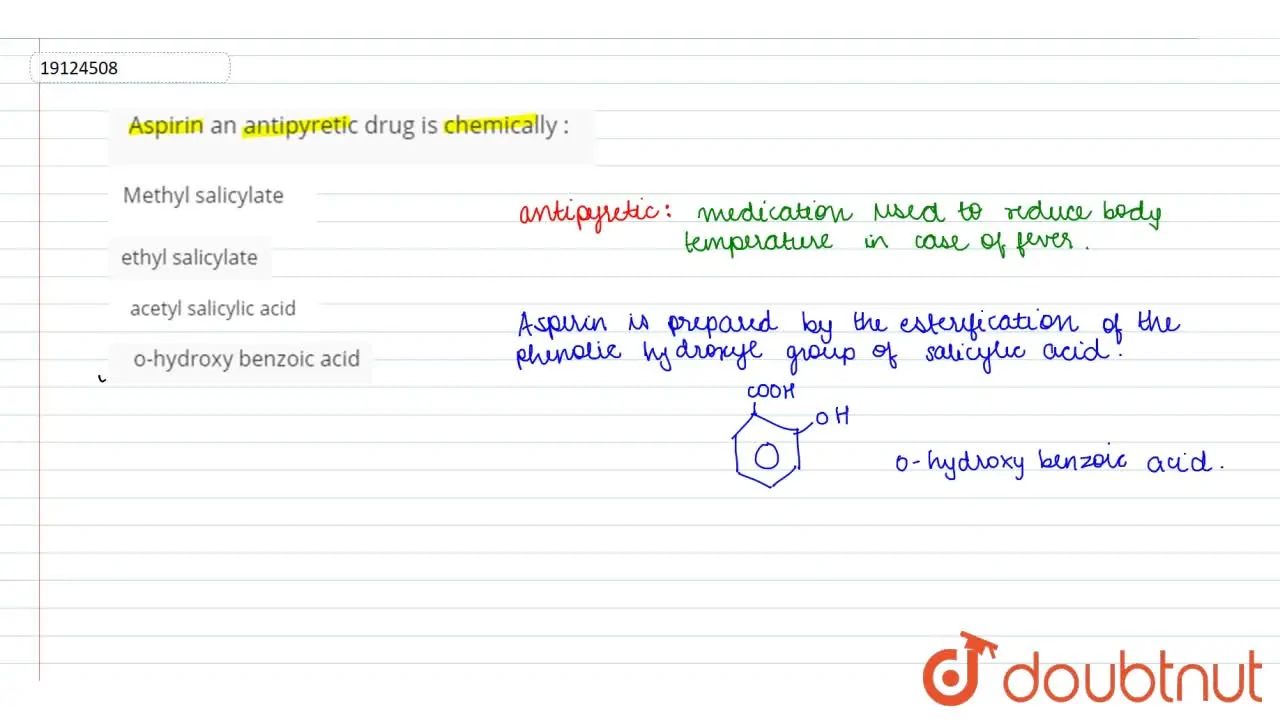 19124508
Aspirin an antipyretic drug is chemically :
Methyl salicylate
ethyl salicylate
acetyl salicylic acid
o-hydroxy benzoic acid
antipyretic: medication used to reduce body
temperature in case of fever.
Aspirin is prepared by the esterification of the
phenolic hydroxyl group of salicylic acid.
COOH
OH
o-hydroxy benzoic acid.
doubtnut